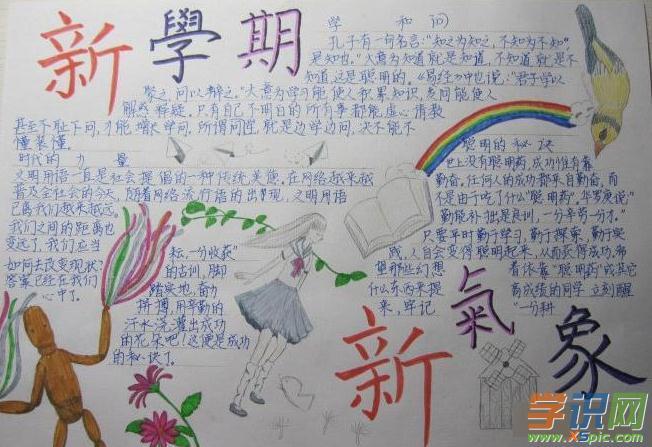 新學期
学和问
孔子有一句名言："知之为知之，不知为不知，
是知也。"大意为知道就是知道，不知道就是不
知道这是聪明的。《易经》中也说："君子学以
聚之，问以辩之。"大意为学习能使人积累知识，发问能使人
解惑释疑。只有自己不明白的所有事都能虚心请教
甚至不耻下问，才能增长学问，所谓问涯就是边学边问，决不能不
懂装懂。
时代的力量
文明用语一直是社会提倡的一种传统美德，在网络越来越
普及全社会的今天，随着网络流行语的出现，文明用语
已离我们越来越远，
我们之间的距离也
变远了，我们应当
如何去改变现状？
答案已经在我们
心中了。
聪明的秘决
世上没有聪明药，成功惟有靠
勤奋。任何人的成功都来自勤奋，而
不是由于吃了什么"聪明药"，华罗庚说："
勤能补拙是良训，一分辛劳一分才。"
只要平时勤于学习，勤于探索，勤于实
践，人自会变得聪明起来，从而获得成功，希
望那些幻想着依靠"聪明药"或其它
什么东西来提高成绩的同学立刻醒
来，牢记"一分耕
耘，一分收获"
的古训，脚
踏实地，奋力
拼搏，用辛勤的
汗水浇灌出成功
的花朵吧！这便是成功
的秘诀了。
新氣象
学识网
www.xspic.com